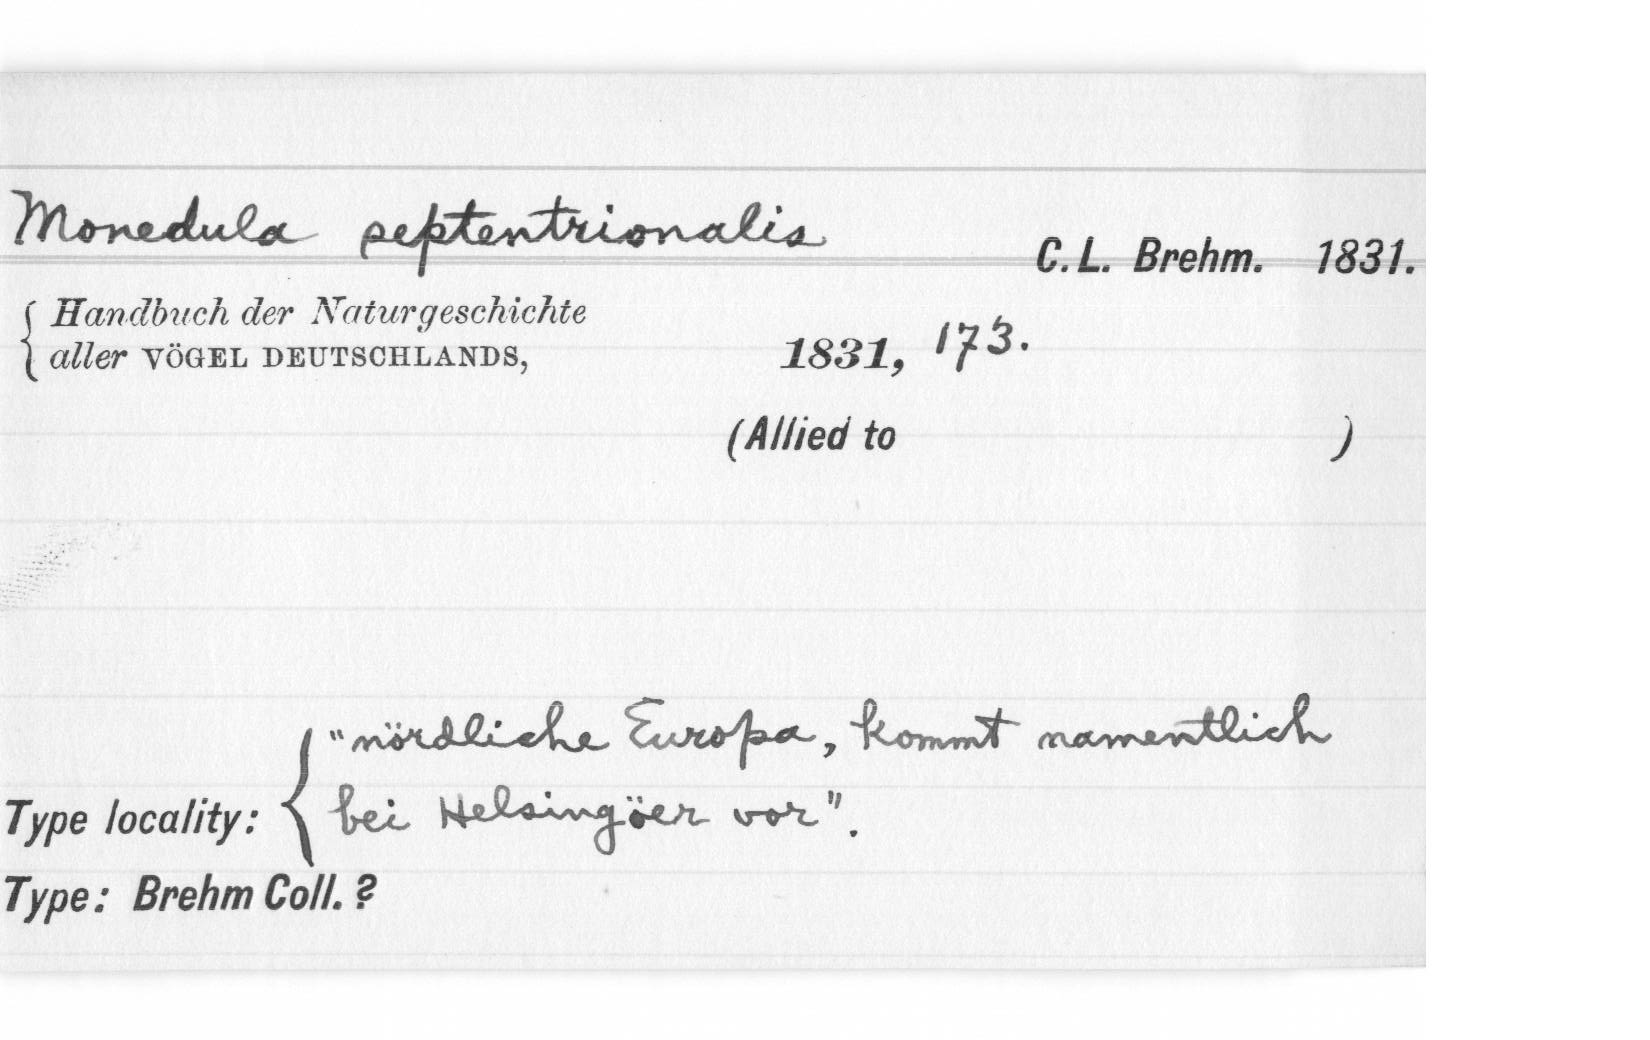 Monedula septentrionalis
C. L. Brehm. 1831.
Handbuch der Naturgeschichte
aller VÖGEL DEUTSCHLANDS,
1831, 173.
(Allied to )
"nördliche Europa, kommt namentlich
Type locality: bei Helsingöer vor".
Type: Brehm Coll. ?